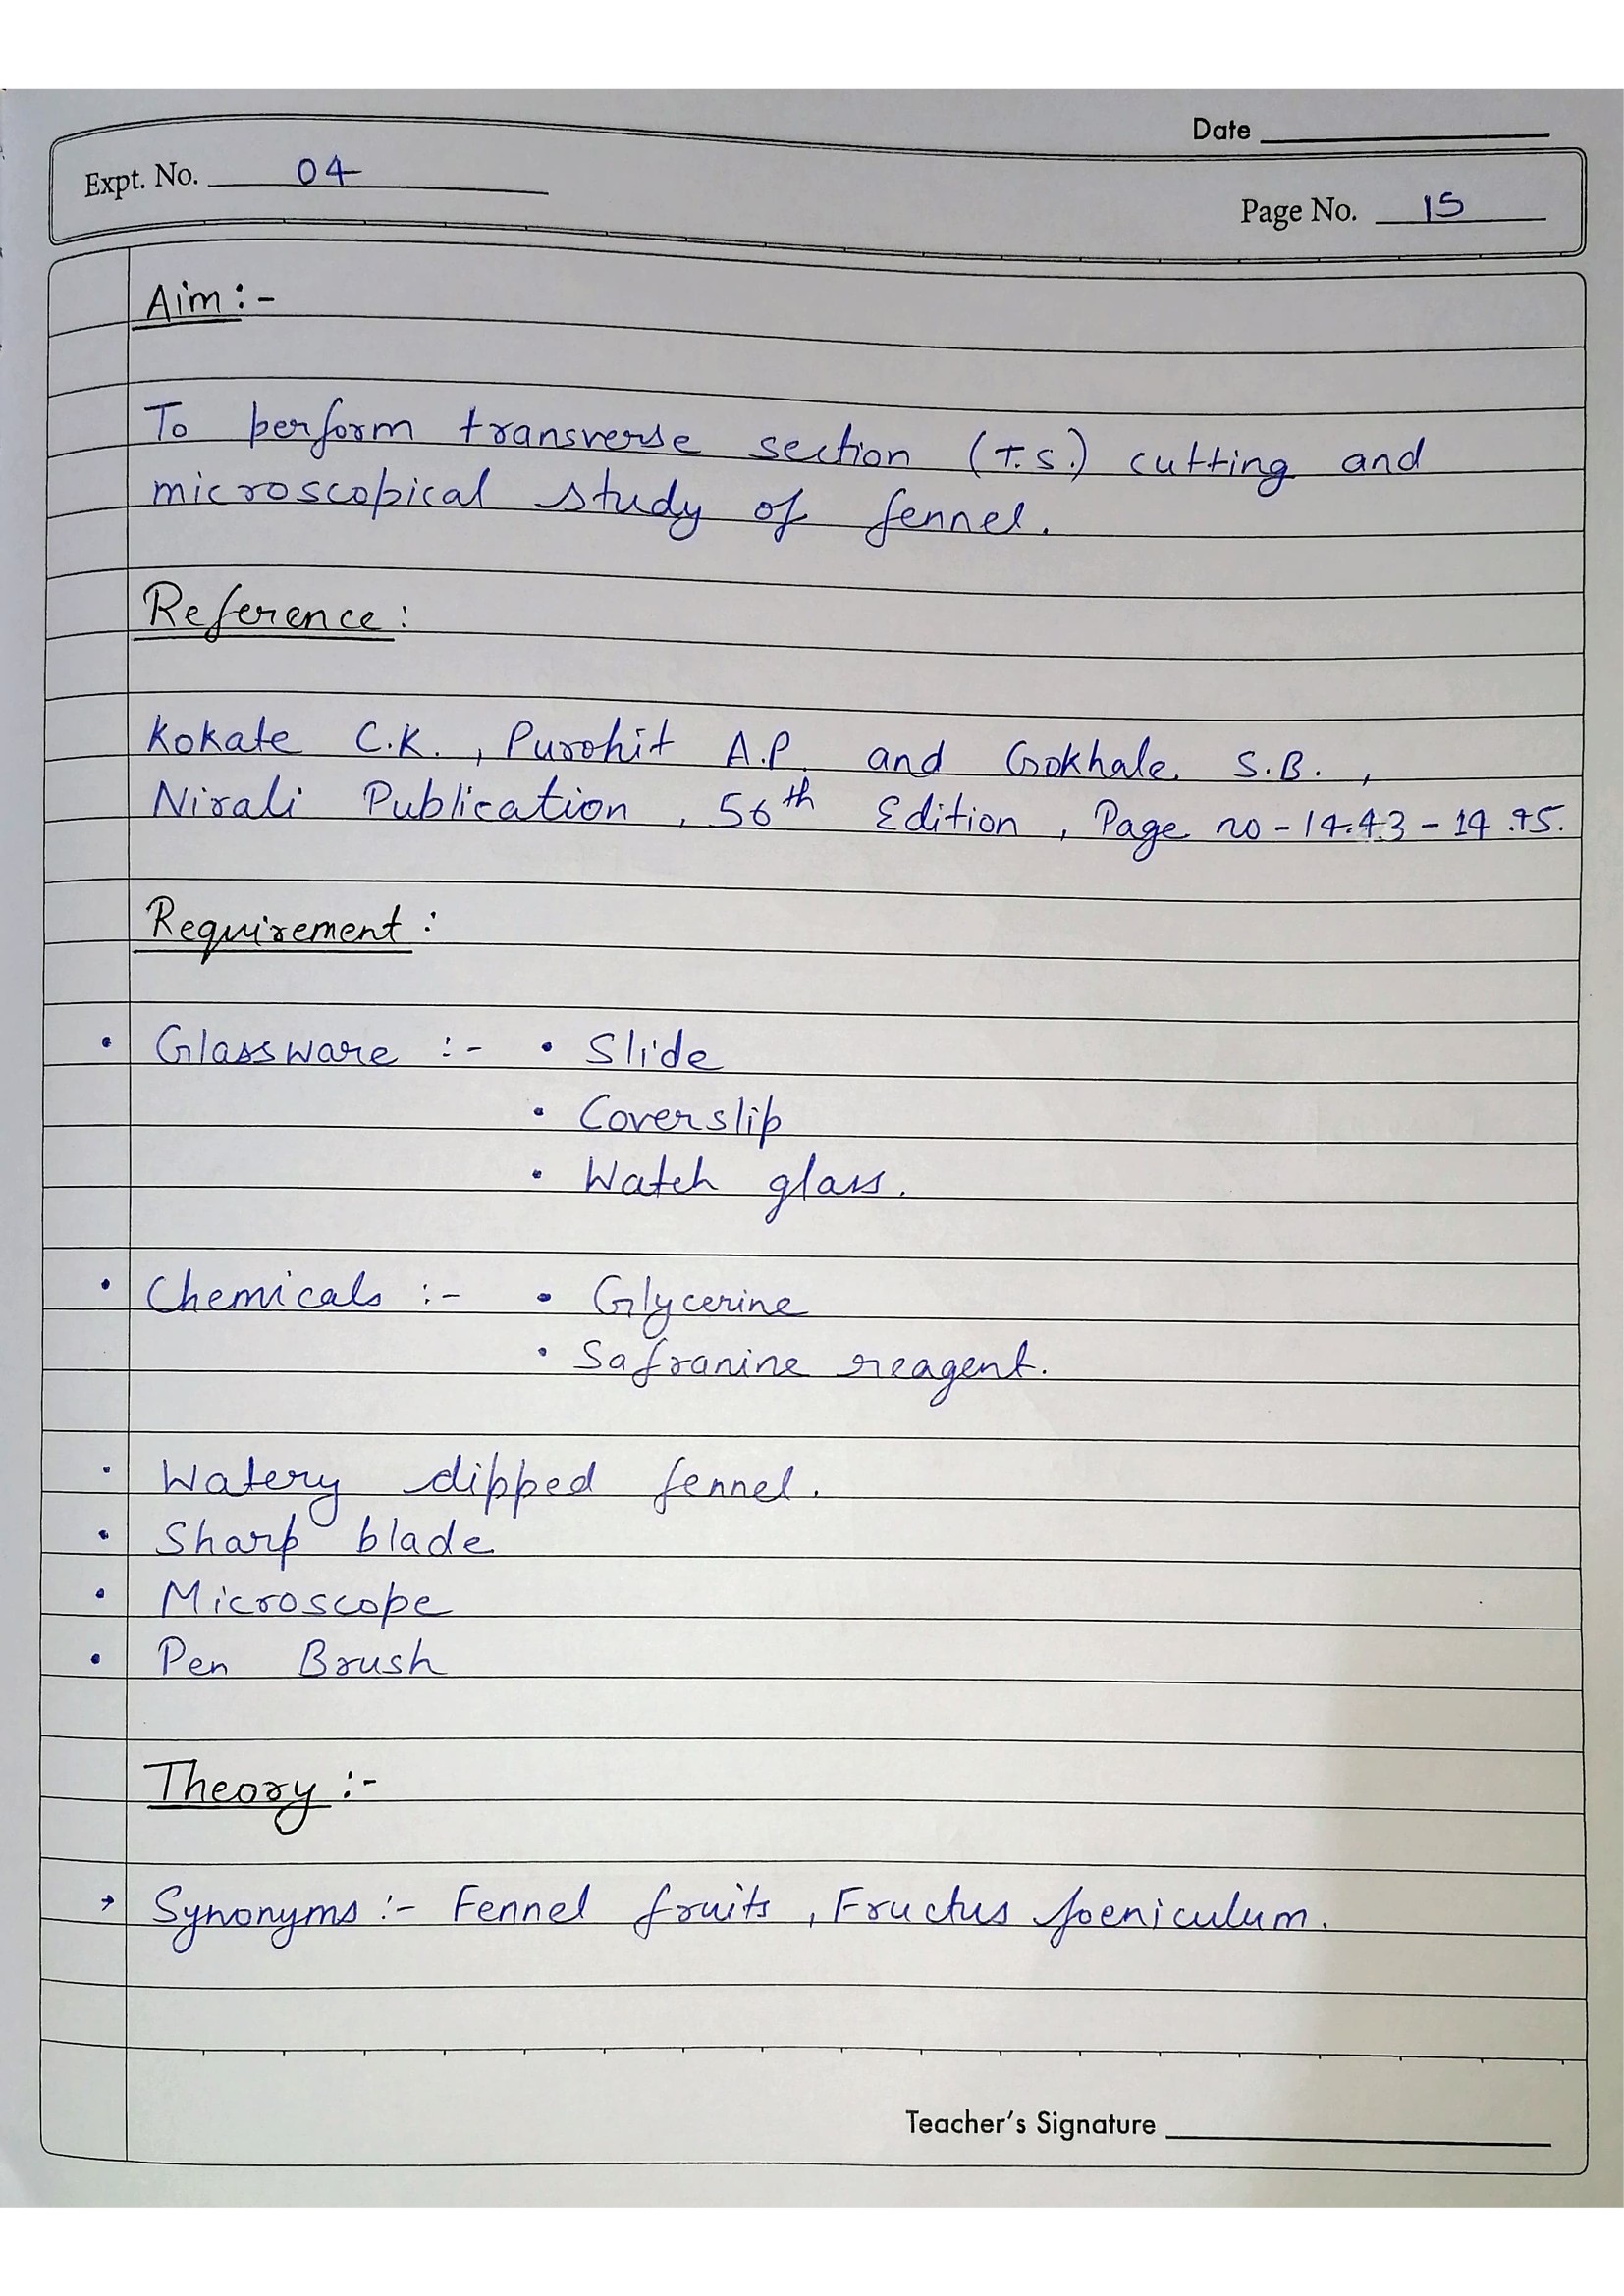 Date
Expt. No. 04
Page No. 15
Aim:-
To perform transverse section (T.S.) cutting and
microscopical study of fennel.
Reference:
Kokate C.K., Purohit A.P. and Gokhale S.B.,
Nirali Publication, 56th Edition, Page no - 14.43 - 14.45.
Requirement:
• Glassware :- • Slide
• Coverslip
• Watch glass.
• Chemicals :- • Glycerine
• Safranine reagent.
• Watery dipped fennel.
• Sharp blade
• Microscope
• Pen Brush
Theory :-
→ Synonyms :- Fennel fruits, Fructus foeniculum.
Teacher's Signature